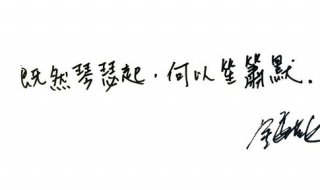 既然琴瑟起，何以笙箫默．